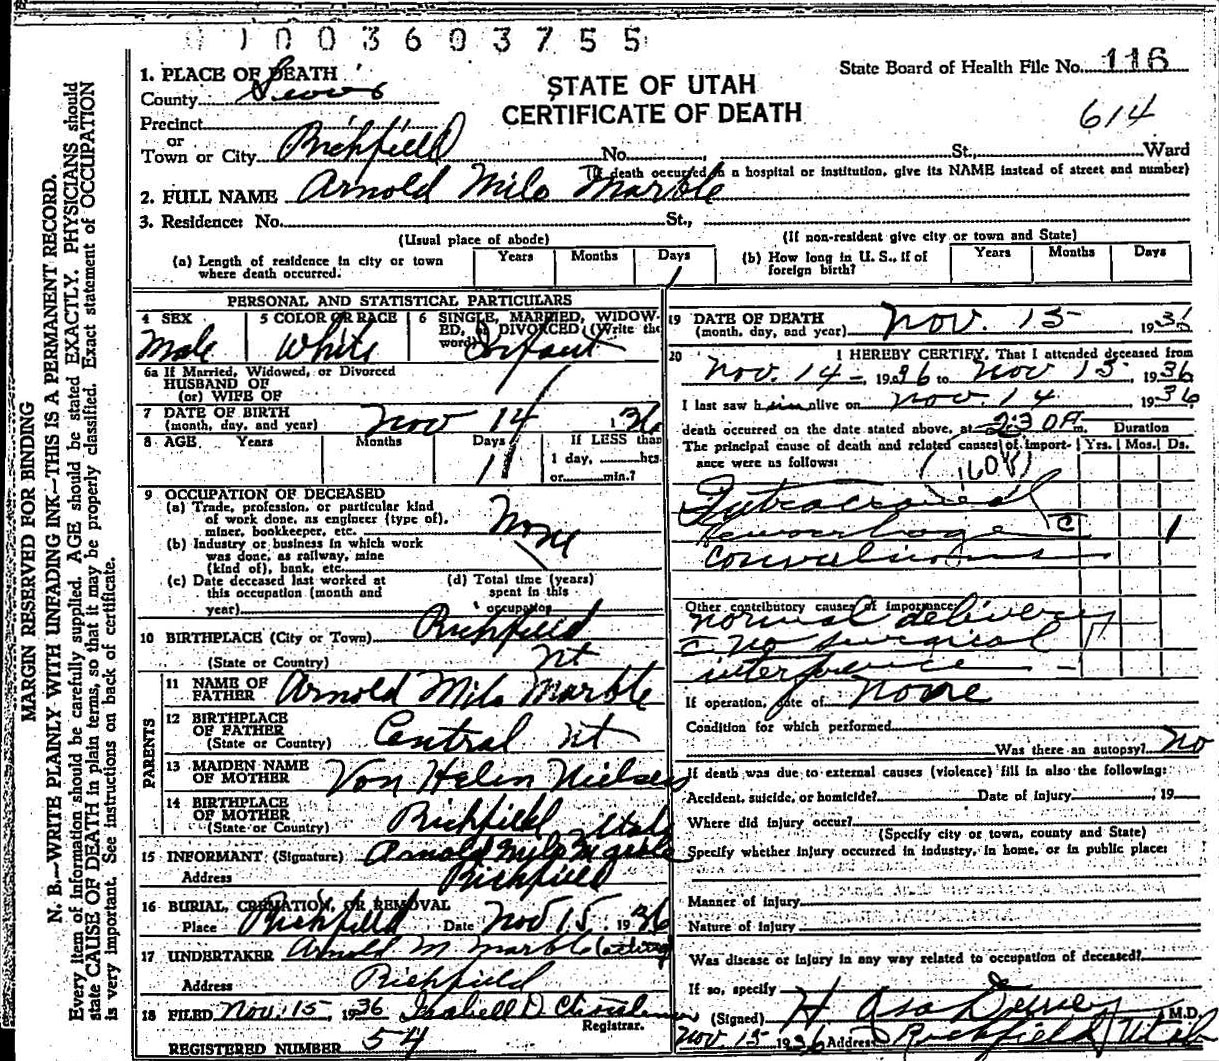 01003603755
1. PLACE OF DEATH
County Sevier
Precinct
or
Town or City Richfield No. St., Ward
(If death occurred in a hospital or institution, give its NAME instead of street and number)
STATE OF UTAH
CERTIFICATE OF DEATH
State Board of Health File No. 116
614
2. FULL NAME Arnold Milo Marble
3. Residence: No. St.,
(Usual place of abode) (If non-resident give city or town and State)
(a) Length of residence in city or town where death occurred. Years Months Days 1
(b) How long in U. S., if of foreign birth? Years Months Days
PERSONAL AND STATISTICAL PARTICULARS
4 SEX Male
5 COLOR OR RACE White
6 SINGLE, MARRIED, WIDOWED, or DIVORCED (Write the word) Infant
6a If Married, Widowed, or Divorced
HUSBAND OF
(or) WIFE OF
7 DATE OF BIRTH (month, day, and year) Nov 14 1936
8 AGE Years Months Days 1 If LESS than
1 day, hrs.
or min.?
9 OCCUPATION OF DECEASED
(a) Trade, profession, or particular kind
of work done, as engineer (type of),
miner, bookkeeper, etc. None
(b) Industry or business in which work
was done, as railway, mine
(kind of), bank, etc.
(c) Date deceased last worked at
this occupation (month and
year)
(d) Total time (years)
spent in this
occupation
10 BIRTHPLACE (City or Town) Richfield
(State or Country) Ut
PARENTS
11 NAME OF FATHER Arnold Milo Marble
12 BIRTHPLACE OF FATHER (State or Country) Central Ut
13 MAIDEN NAME OF MOTHER Von Helen Nielsen
14 BIRTHPLACE OF MOTHER (State or Country) Richfield Utah
15 INFORMANT (Signature) Arnold Mylo Marble
Address Richfield
16 BURIAL, CREMATION, OR REMOVAL
Place Richfield Date Nov 15 1936
17 UNDERTAKER Arnold M Marble (acting)
Address Richfield
18 FILED Nov. 15, 1936 D. Registrar.
REGISTERED NUMBER 54
19 DATE OF DEATH (month, day, and year) Nov. 15 1936
20 I HEREBY CERTIFY, That I attended deceased from
Nov. 14-, 1936 to Nov 15, 1936
I last saw him alive on Nov 14 1936
death occurred on the date stated above, at 2:30 A m. Duration
The principal cause of death and related causes of importance were as follows: Yrs. Mos. Ds.
Intracranial
hemorrhage c 1
convulsions
Other contributory causes of importance
normal delivery
c no surgical
interference -
If operation, date of none
Condition for which performed
Was there an autopsy? No
If death was due to external causes (violence) fill in also the following:
Accident, suicide, or homicide? Date of injury , 19
Where did injury occur?
(Specify city or town, county and State)
Specify whether injury occurred in industry, in home, or in public place:
Manner of injury
Nature of injury
Was disease or injury in any way related to occupation of deceased?
If so, specify
(Signed) H Asa Dewey M.D.
Nov 15 1936 Address Richfield Utah
MARGIN RESERVED FOR BINDING
N. B.—WRITE PLAINLY WITH UNFADING INK—THIS IS A PERMANENT RECORD.
Every item of information should be carefully supplied. AGE should be stated EXACTLY. PHYSICIANS should
state CAUSE OF DEATH in plain terms, so that it may be properly classified. Exact statement of OCCUPATION
is very important. See instructions on back of certificate.